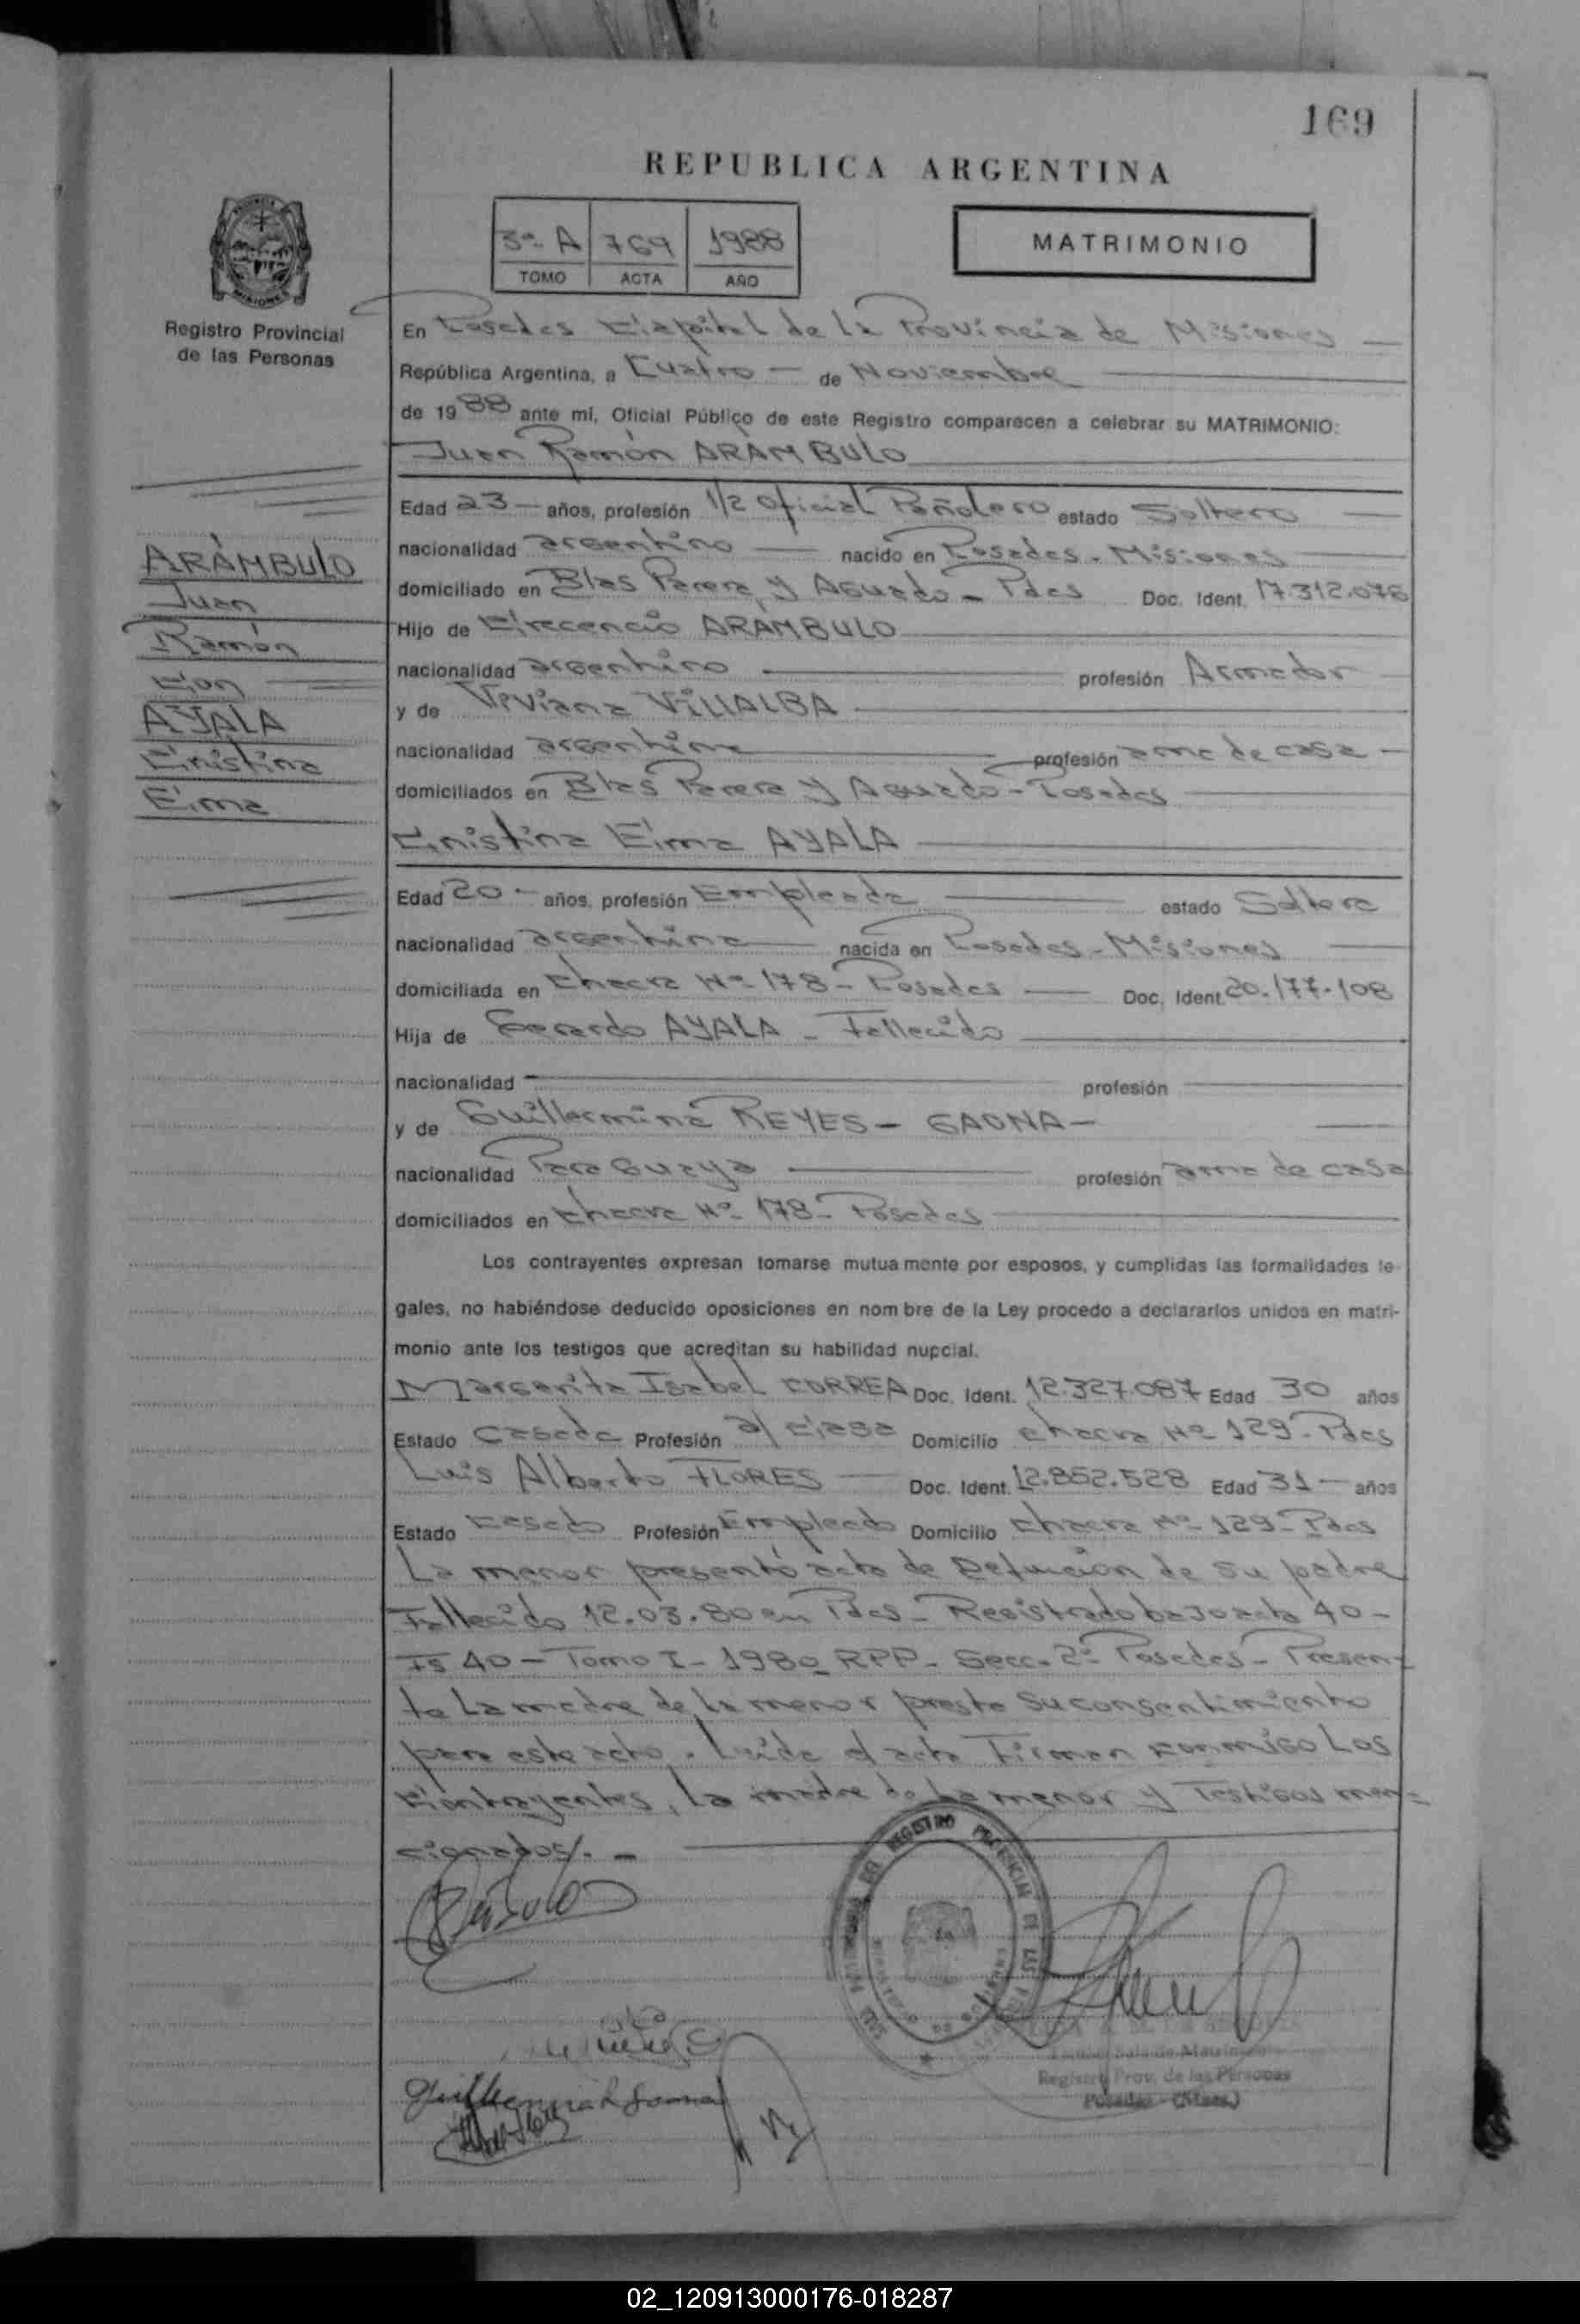 169
REPUBLICA ARGENTINA
3º A 769 1988
TOMO ACTA AÑO
MATRIMONIO
PROVINCIA DE MISIONES
Registro Provincial
de las Personas
En Posadas Capital de la Provincia de Misiones
República Argentina, a Cuatro - de Noviembre
de 1988 ante mí, Oficial Público de este Registro comparecen a celebrar su MATRIMONIO:
Juan Ramón ARAMBULO
Edad 23 - años, profesión 1/2 oficial Pañolero estado Soltero
nacionalidad argentino nacido en Posadas - Misiones
domiciliado en Blas Parera y Aguado - Pdas Doc. Ident. 17.312.078
Hijo de Crecencio ARÁMBULO
nacionalidad argentino profesión Armador
y de Viviana VILLALBA
nacionalidad argentina profesión ama de casa -
domiciliados en Blas Parera y Aguado - Posadas
ARÁMBULO
Juan
Ramón
Con
AYALA
Cristina
Ema
Cristina Ema AYALA
Edad 20 - años, profesión Empleada estado Soltera
nacionalidad argentina nacida en Posadas - Misiones
domiciliada en Chacra Nº 178 - Posadas Doc. Ident. 20.177.108
Hija de Gerardo AYALA - Fallecido
nacionalidad profesión
y de Guillermina REYES - GAONA -
nacionalidad Paraguaya profesión ama de casa
domiciliados en Chacra Nº 178 - Posadas
Los contrayentes expresan tomarse mutuamente por esposos, y cumplidas las formalidades le-
gales, no habiéndose deducido oposiciones en nombre de la Ley procedo a declararlos unidos en matri-
monio ante los testigos que acreditan su habilidad nupcial.
Margarita Isabel CORREA Doc. Ident. 12.327.087 Edad 30 años
Estado Casada Profesión a/ Casa Domicilio Chacra Nº 129 - Pdas
Luis Alberto FLORES Doc. Ident. 12.852.528 Edad 31 - años
Estado Casado Profesión Empleado Domicilio Chacra Nº 129 - Pdas
La menor presentó acta de Defunción de su padre
Fallecido 12.03.80 en Pdas - Registrado bajo acta 40 -
Fs 40 - Tomo I - 1980 RPP - Secc. 2º Posadas - Presen-
te La madre de la menor presta su consentimiento
para este acto. Leída el acta Firman conmigo Los
Contrayentes, la madre de la menor y Testigos men-
cionados/. -
DEL REGISTRO PROVINCIAL DE LAS
Guillermina R Gaona
Sala de
Registro Prov. de las Personas
Posadas - (Mnes.)
02_120913000176-018287